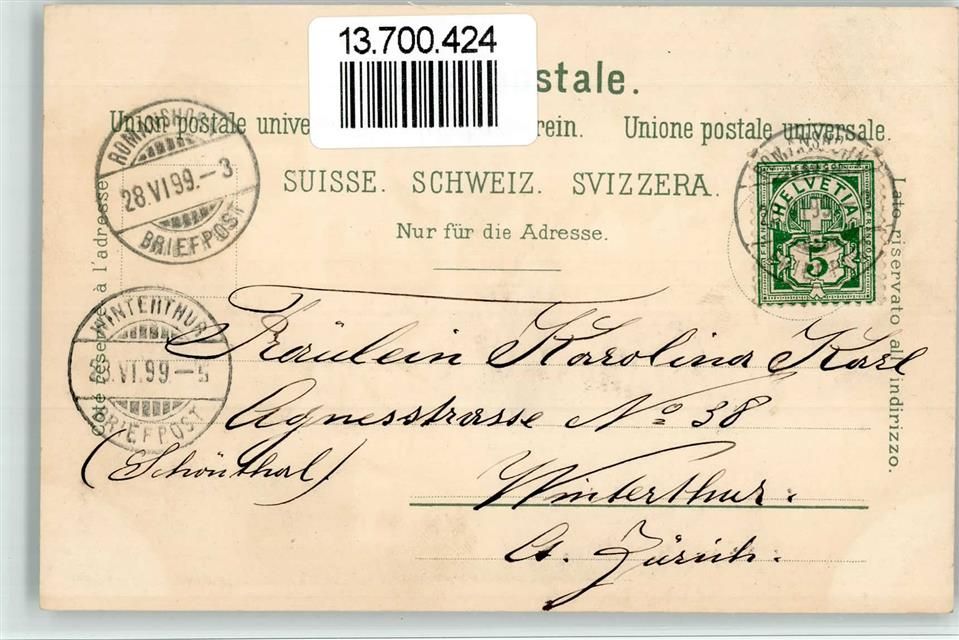 13.700.424
postale.
Union postale unive rein. Unione postale universale.
SUISSE. SCHWEIZ. SVIZZERA.
Nur für die Adresse.
Côté réservé à l'adresse
Lato riservato all'indirizzo.
ROMANSHORN
28.VI.99.-3
BRIEFPOST
WINTERTHUR
28.VI.99.-5
BRIEFPOST
ROMANSHORN
HELVETIA
5
Fräulein Karolina Karl
Agnesstrasse No 38
(Schönthal)
Winterthur.
Ct. Zürich.